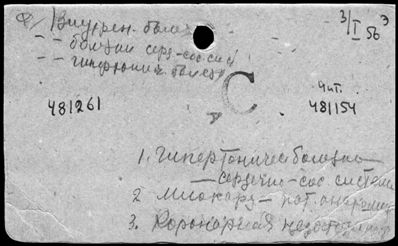 Внутрен. болез
– – болезни серд-сос. сис
– – гипертонич. болез
3/I 56
С
481261
Чит.
481154
1. Гипертонич болезнь
– сердечн – сос системы
2 Миокард – пат. анатомия
3. Коронарная недостаточ